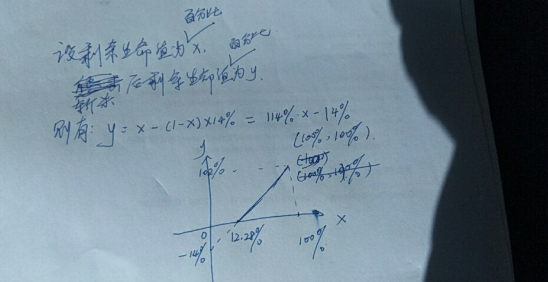 百分比
设剩余生命值为x.
百分比
后剩余生命值为y.
斩杀
则有: y = x - (1-x)×14% = 114%·x - 14%
(100%, 100%).
y
100%
(100%, 100%)
0
12.28%
100%
x
-14%